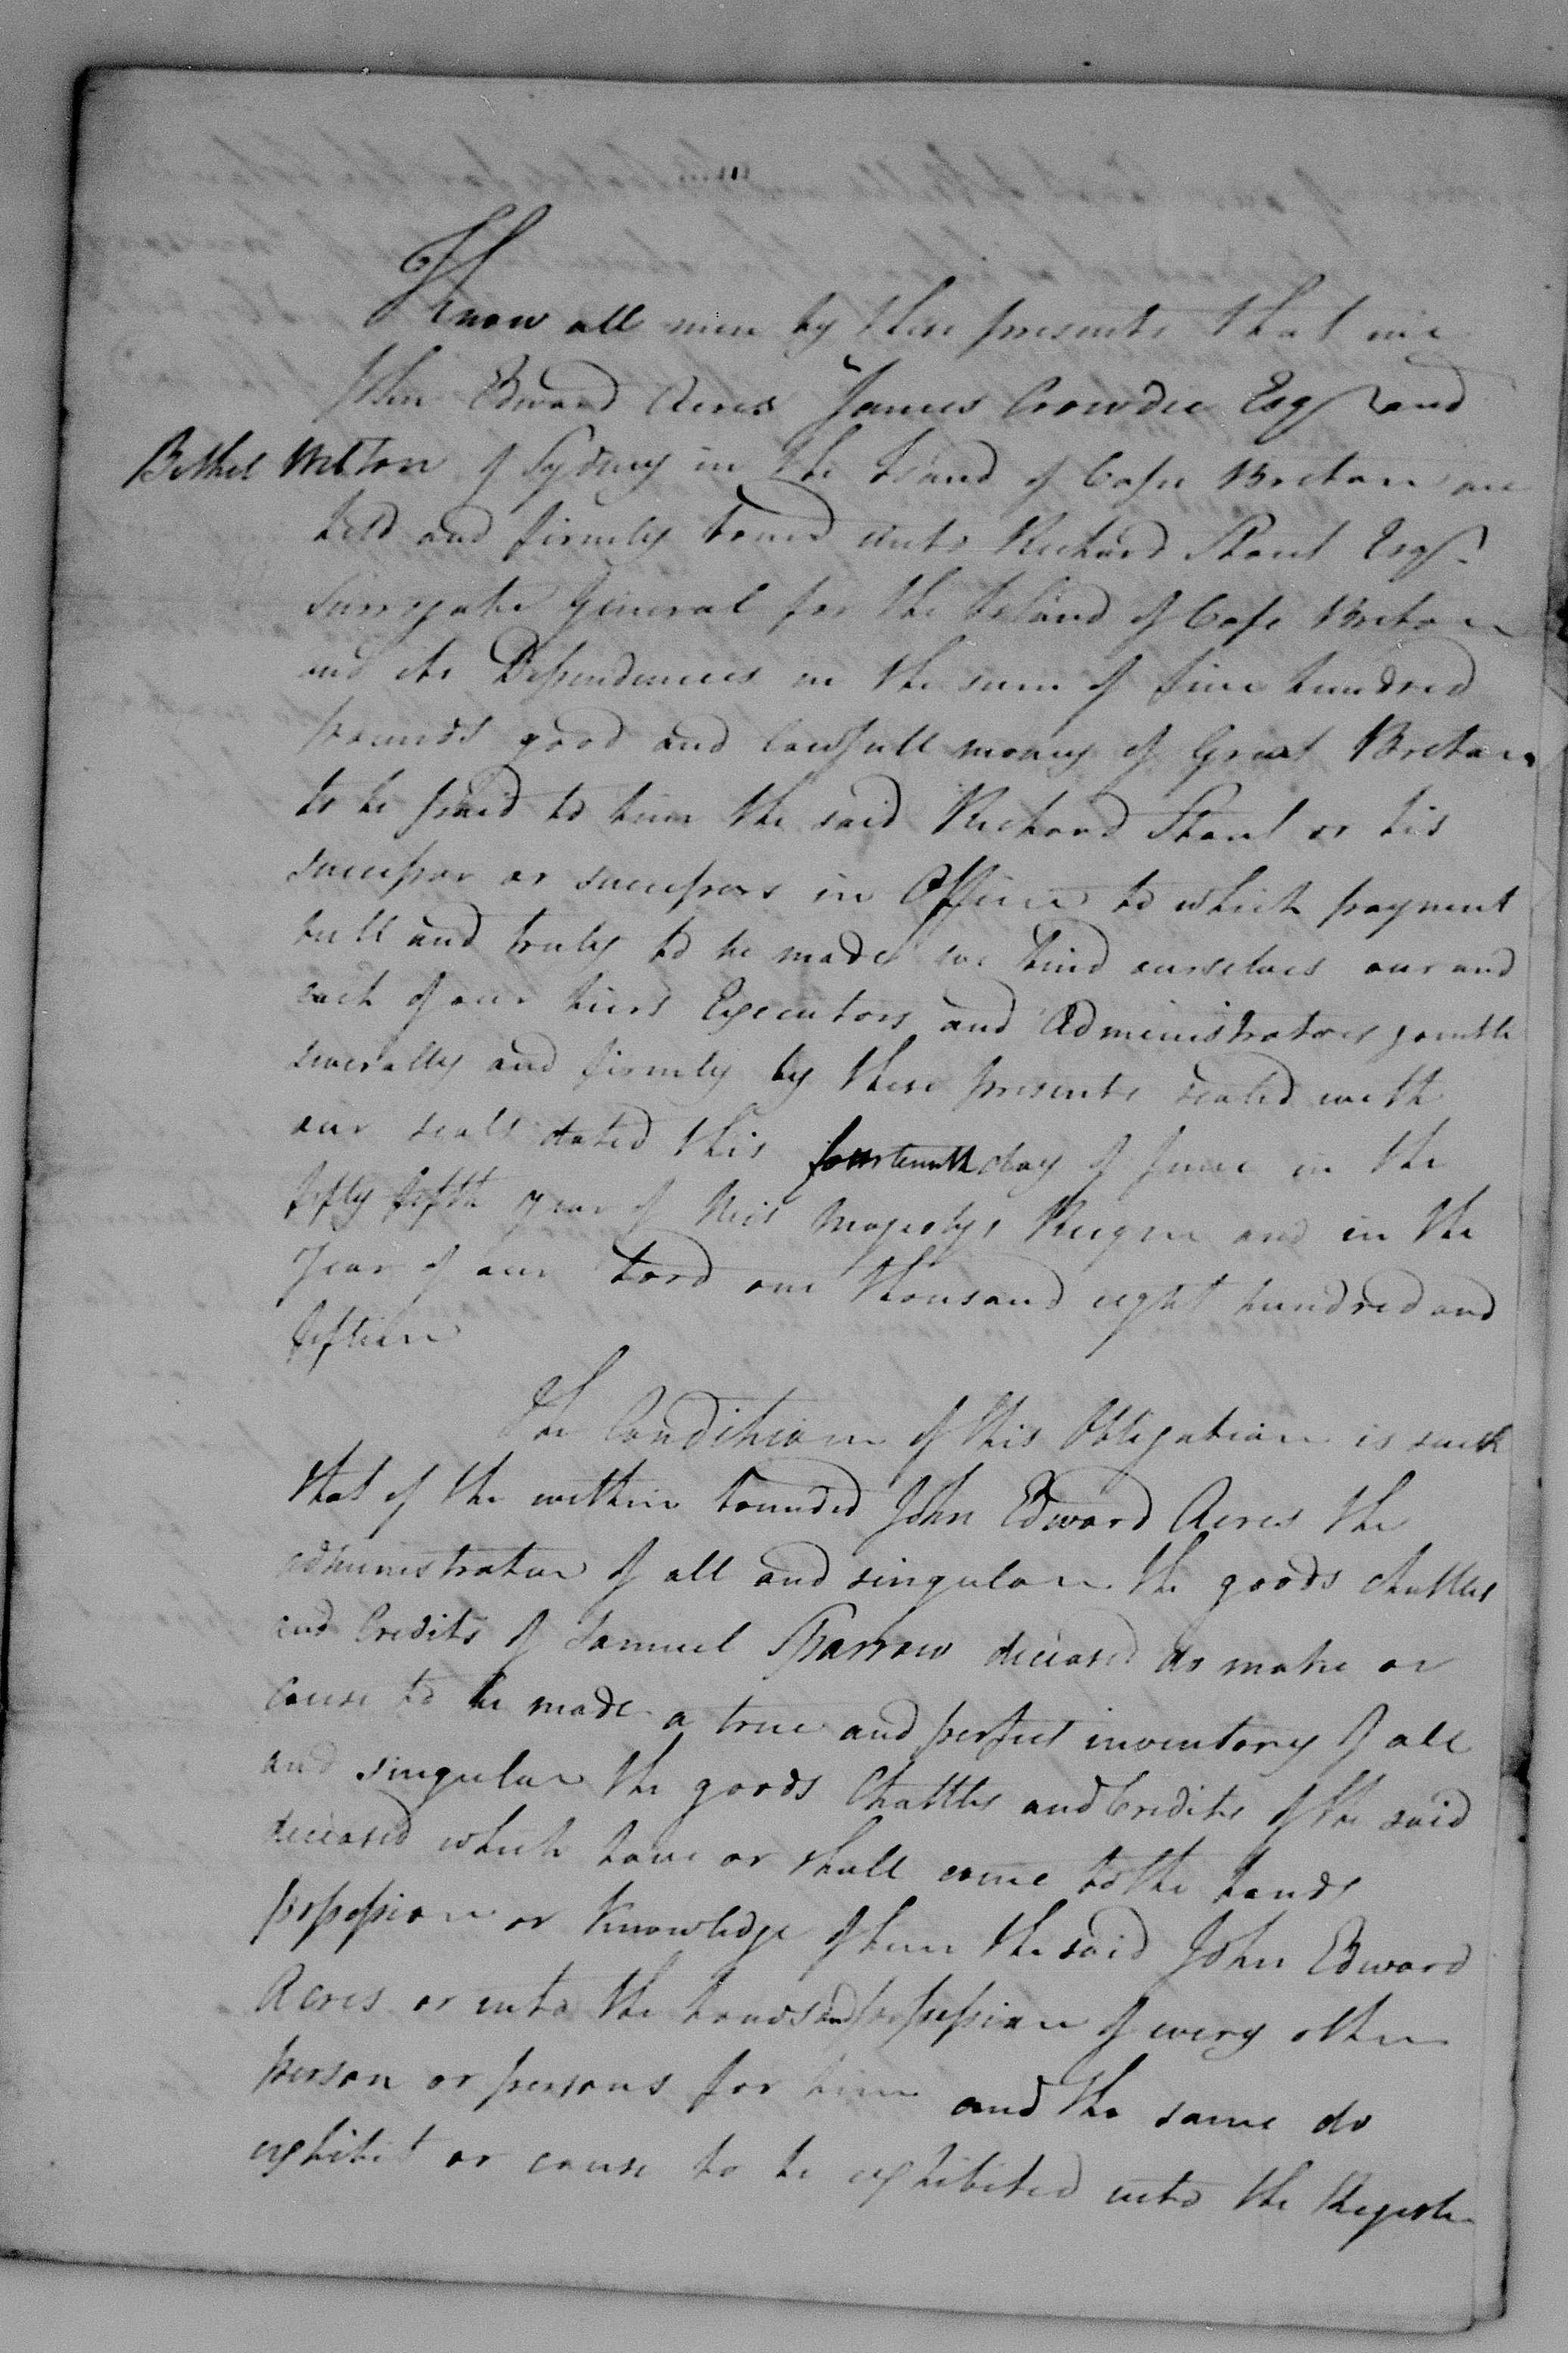 Know all men by these presents that we
John Edward Acres James Crowdie Esqr and
Bethel Milton of Sydney in the Island of Cape Breton are
held and firmly bound unto Richard Stout Esqr.
Surrogate General for the Island of Cape Breton
and its Dependencies in the sum of five hundred
pounds good and lawfull money of Great Bretan
to be paid to him the said Richard Stout or his
successor or successors in Office to which payment
well and truly to be made we bind ourselves our and
each of our hiers Executors and Administrators jointle
severally and firmly by these presents sealed with
our seals dated this fourteenth day of June in the
fifty fifth year of His Majestys Reign and in the
Year of our Lord one thousand eight hundred and
fifteen
The Condition of this Obligation is such
that if the within bounded John Edward Acres the
administrator of all and singular the goods chattles
and Credits of Samuel Sparrow deceased do make or
cause to be made a true and perfect inventory of all
and singular the goods Chattles and Credits of the said
deceased which have or shall come to the hands
possession or Knowledge of him the said John Edward
Acres or into the hands and possession of every other
person or persons for him and the same do
exhibit or cause to be exhibited into the Register